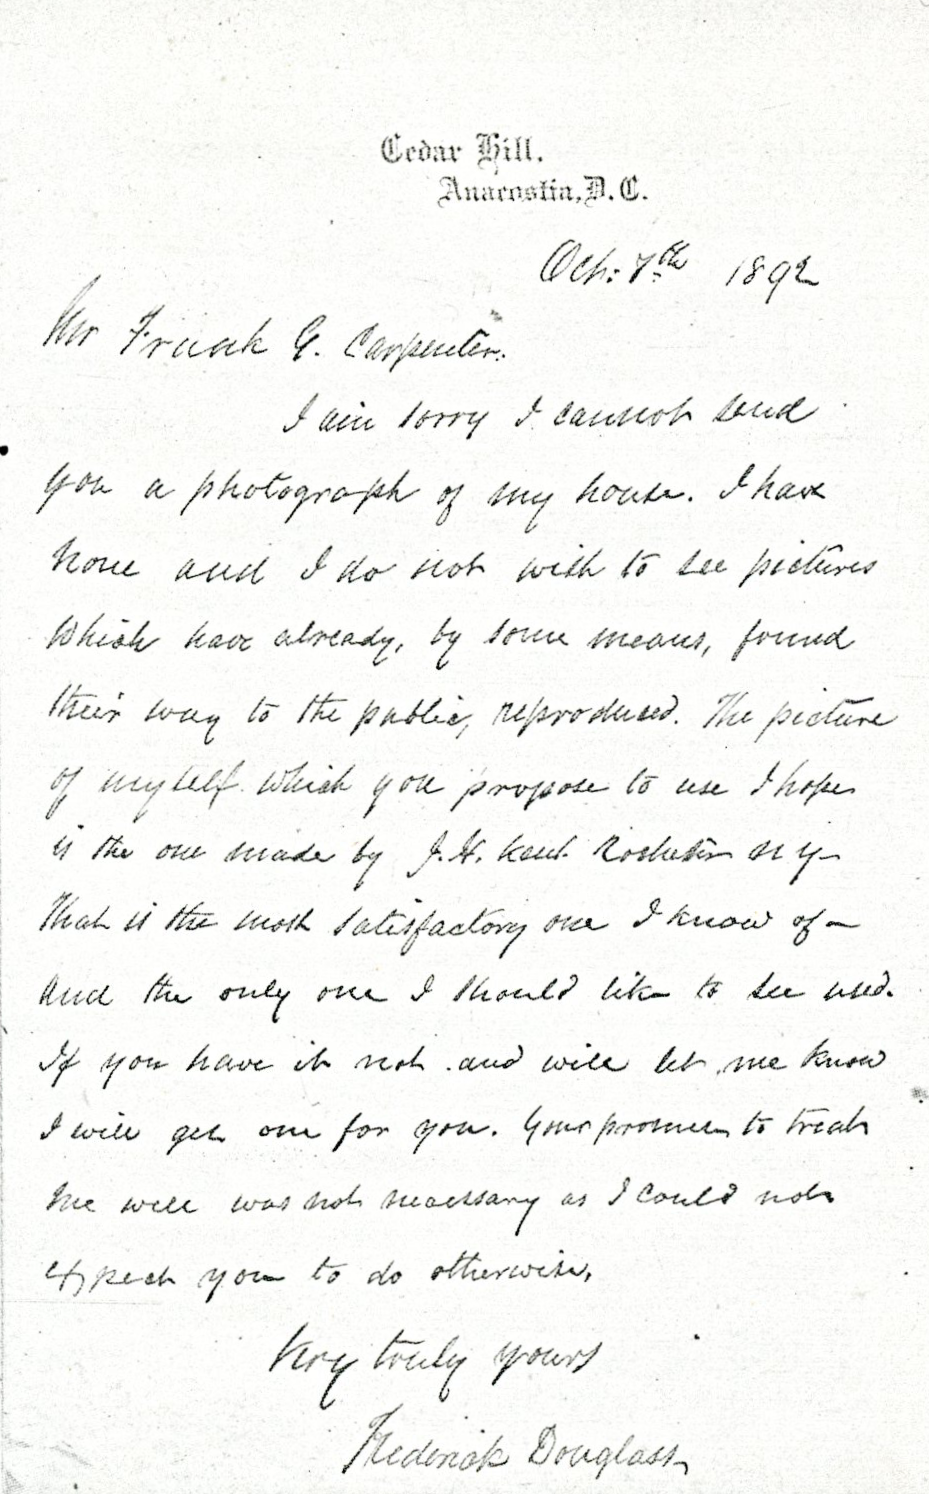 Cedar Hill.
Anacostia, D.C.
Oct: 7th 1892
Mr Frank G. Carpenter.
I am sorry I cannot send
you a photograph of my house. I have
none and I do not wish to see pictures
which have already, by some means, found
their way to the public, reproduced. The picture
of myself which you propose to use I hope
is the one made by J. H. Kent Rochester N Y–
That is the most satisfactory one I know of –
and the only one I should like to see used.
If you have it not and will let me know
I will get one for you. Your promise to treat
me well was not necessary as I could not
expect you to do otherwise.
Very truly yours
Frederick Douglass